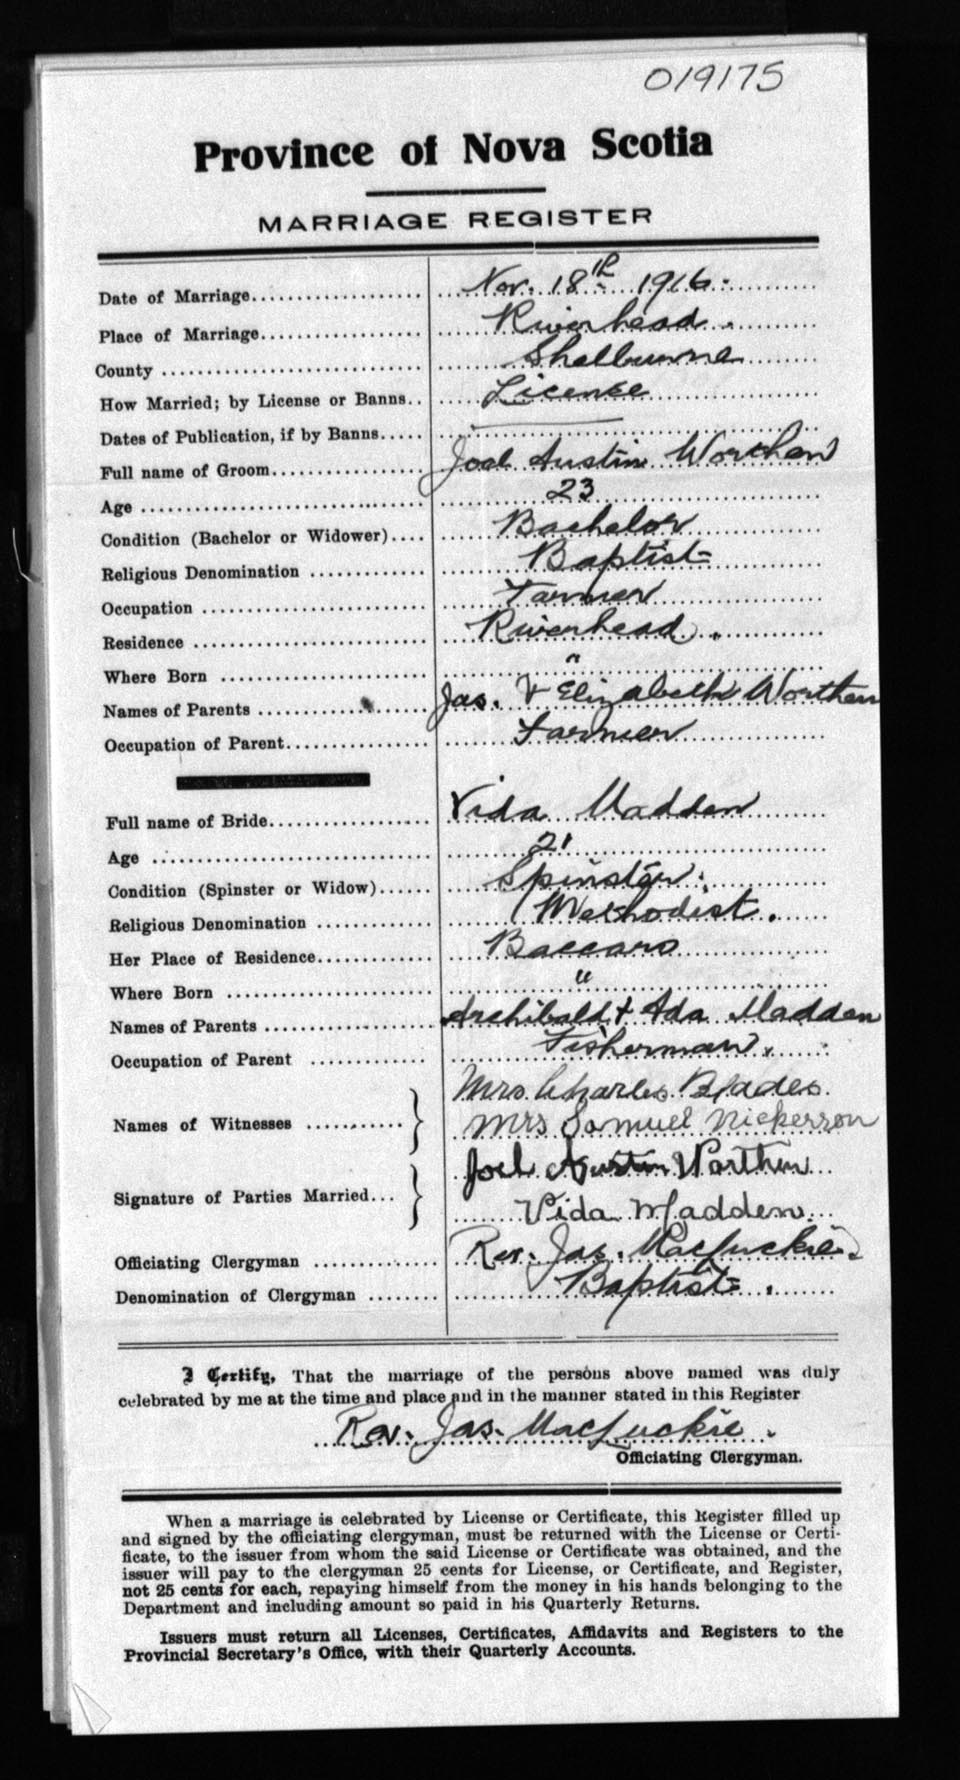 019175
Province of Nova Scotia
MARRIAGE REGISTER
Date of Marriage.................... Nov. 18th 1916.
Place of Marriage................... Riverhead.
County .............................. Shelburne
How Married; by License or Banns.. License
Dates of Publication, if by Banns..... —
Full name of Groom.................. Joel Austin Worthen
Age ................................. 23
Condition (Bachelor or Widower).... Bachelor
Religious Denomination ............. Baptist
Occupation .......................... Farmer
Residence ........................... Riverhead.
Where Born ........................ "
Names of Parents .................... Jas. & Elizabeth Worthen
Occupation of Parent................. Farmer
Full name of Bride................... Vida Madden
Age ................................. 21
Condition (Spinster or Widow)...... Spinster.
Religious Denomination ............. Methodist.
Her Place of Residence.............. Baccaro
Where Born ........................ "
Names of Parents .................... Archibald & Ada Madden
Occupation of Parent ............. Fisherman.
Names of Witnesses .......... } Mrs. Charles Blades.
Mrs Samuel Nickerson
Signature of Parties Married... } Joel Austin Worthen
Vida Madden.
Officiating Clergyman .............. Rev. Jas. MacLuckie.
Denomination of Clergyman ........ Baptist.
I Certify, That the marriage of the persons above named was duly
celebrated by me at the time and place and in the manner stated in this Register
Rev. Jas. MacLuckie.
Officiating Clergyman.
When a marriage is celebrated by License or Certificate, this Register filled up
and signed by the officiating clergyman, must be returned with the License or Certi-
ficate, to the issuer from whom the said License or Certificate was obtained, and the
issuer will pay to the clergyman 25 cents for License, or Certificate, and Register,
not 25 cents for each, repaying himself from the money in his hands belonging to the
Department and including amount so paid in his Quarterly Returns.
Issuers must return all Licenses, Certificates, Affidavits and Registers to the
Provincial Secretary's Office, with their Quarterly Accounts.